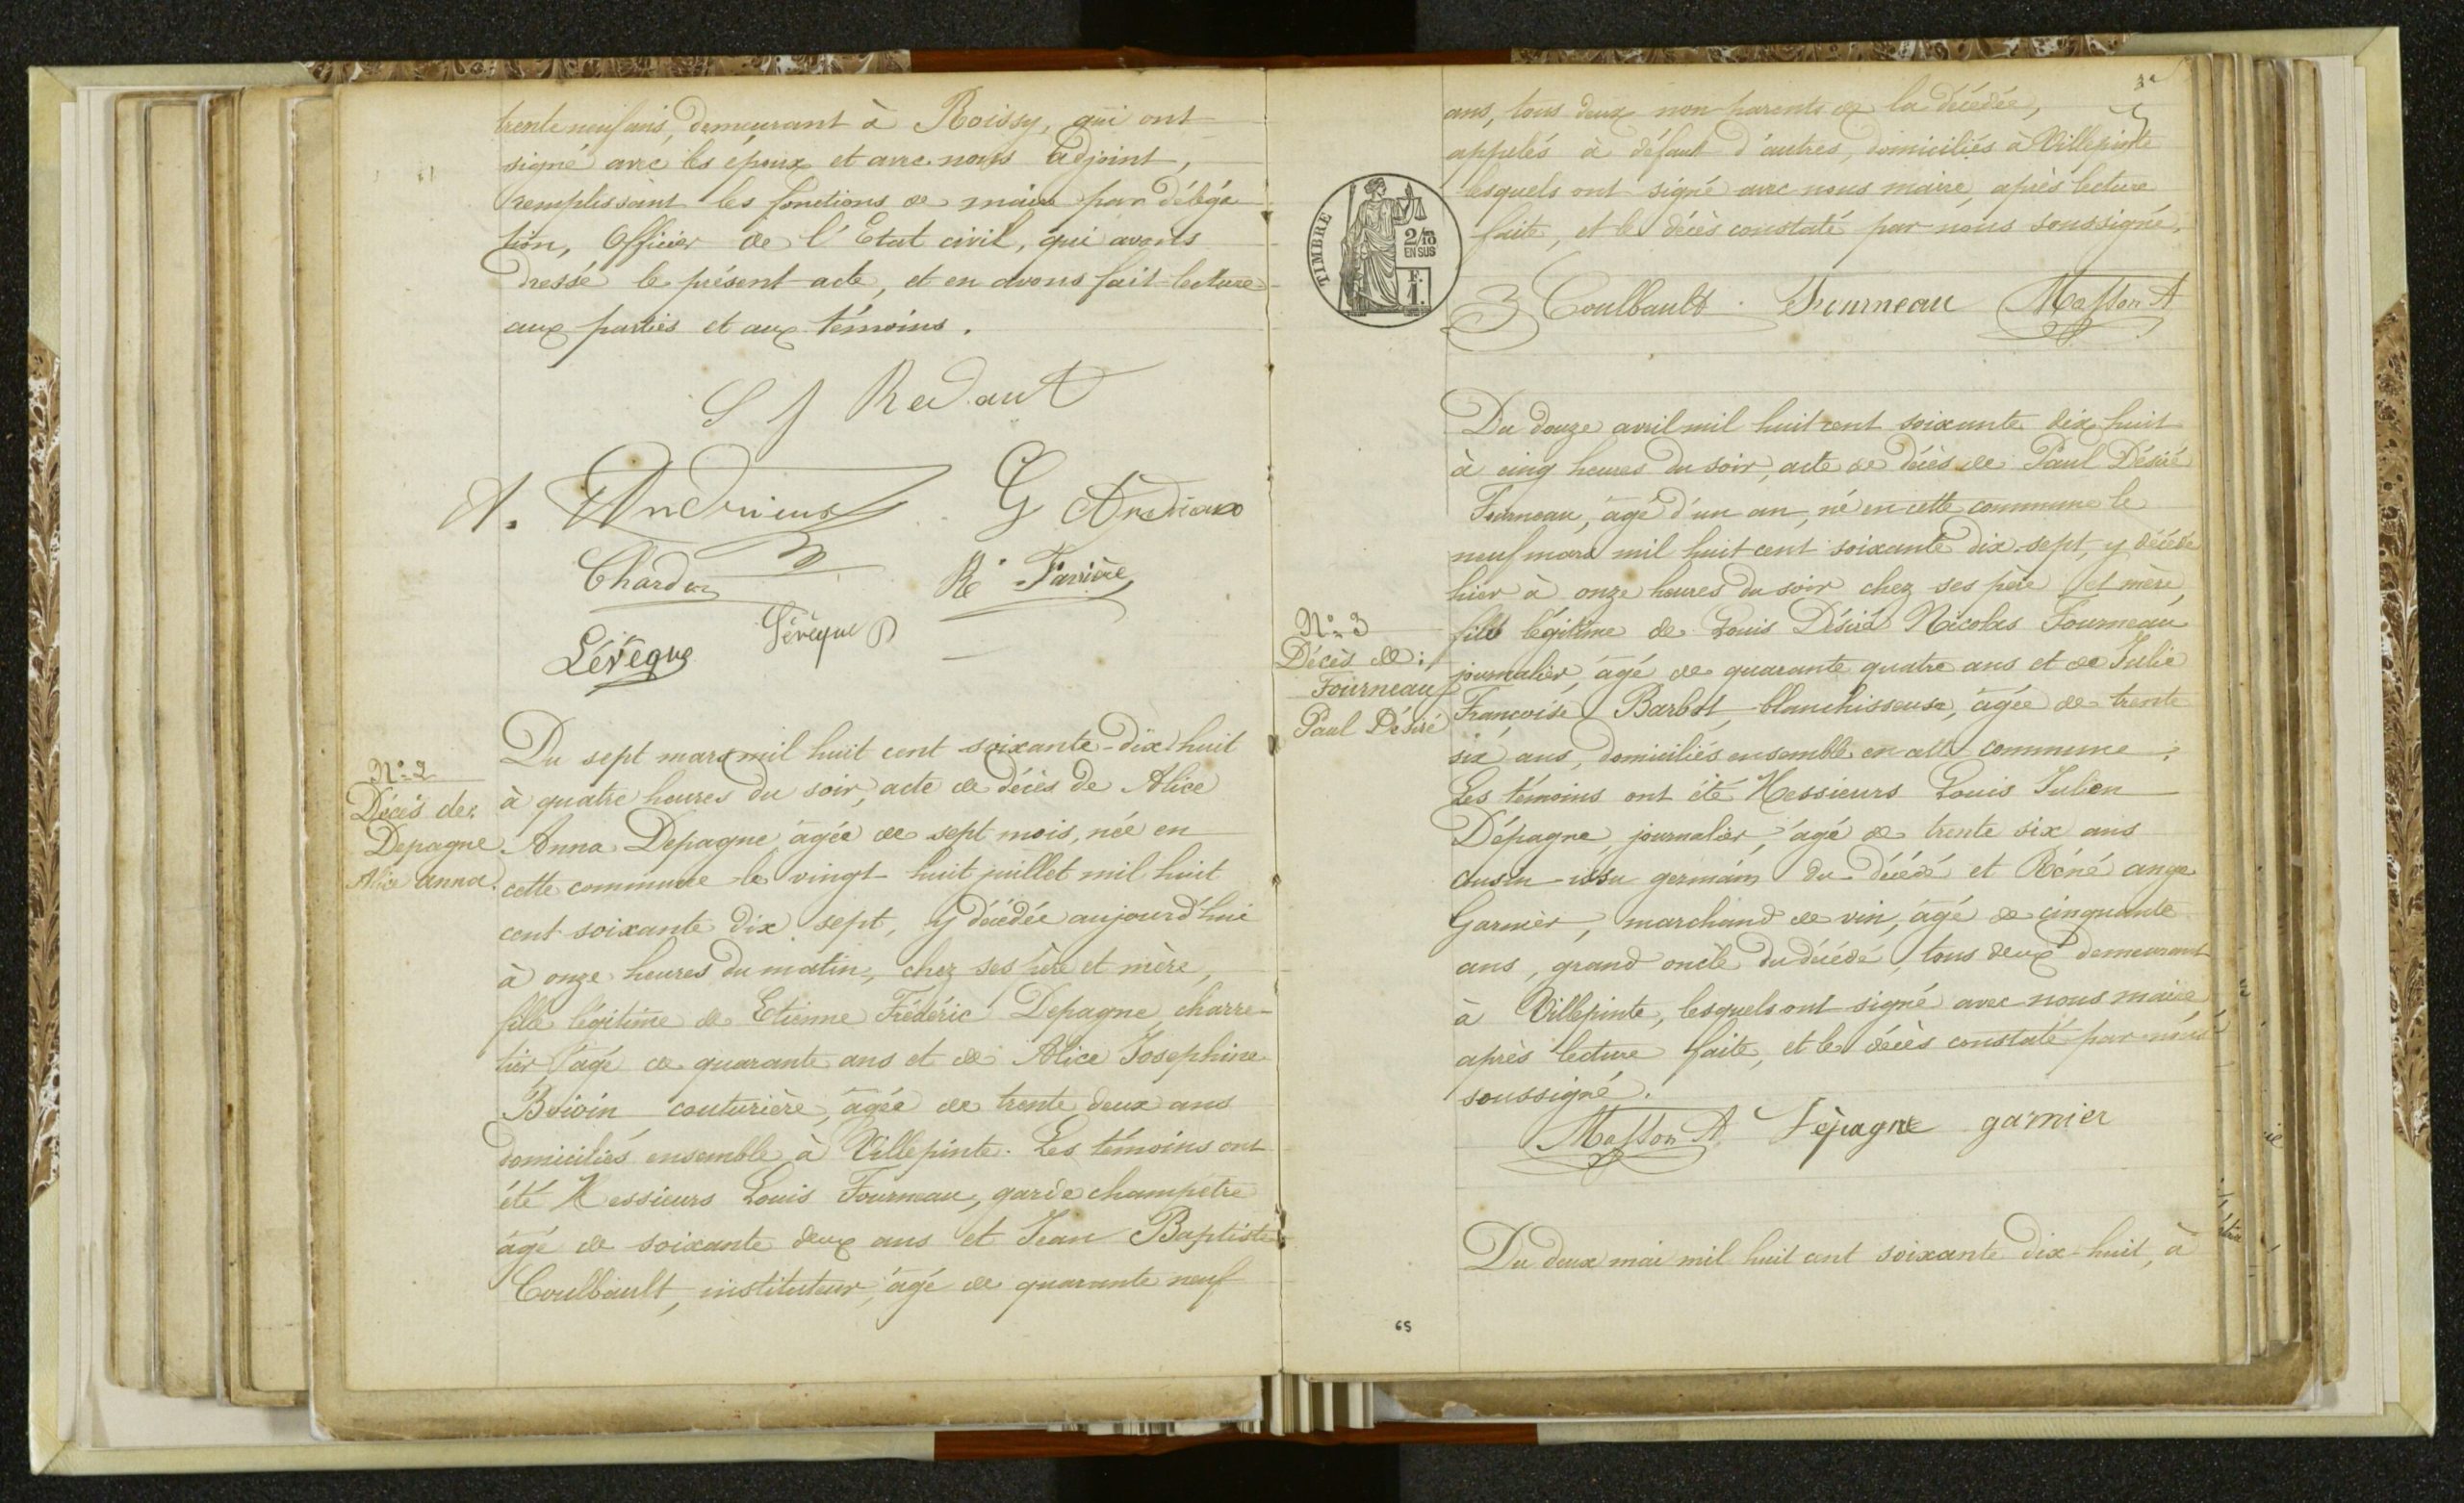 trente neuf ans, demeurant à Roissy, qui ont
signé avec les époux et avec nous adjoint,
remplissant les fonctions de maire par déléga
tion, Officier de l'Etat civil, qui avons
dressé le présent acte, et en avons fait lecture
aux parties et aux témoins.
A. Andrieux
Chardon
Lévêque
Lévêque
N° 2
Décès de:
Depagne
Alice anna.
Du sept mars mil huit cent soixante-dix huit
à quatre heures du soir, acte de décès de Alice
Anna Depagne âgée de sept mois, née en
cette commune le vingt huit juillet mil huit
cent soixante dix sept, y décédée aujourd'hui
à onze heures du matin, chez ses père et mère,
fille légitime de Etienne Frédéric Depagne, charre-
tier, âgé de quarante ans et de Alice Josephine
Boivin couturière, âgée de trente deux ans
domiciliés ensemble à Villepinte. Les témoins ont
été Messieurs Louis Fourneau, garde champêtre
âgé de soixante deux ans et Jean Baptiste
Coulbault, instituteur, âgé de quarante neuf
ans, tous deux non parents de la décédée,
appelés à défaut d'autres, domiciliés à Villepinte
lesquels ont signé avec nous maire, après lecture
faite, et le décès constaté par nous soussigné.
TIMBRE
2/10
EN SUS
F.
1.
Coulbault Fourneau Masson A
N° 3
Décès de:
Fourneau
Paul Désiré
Du douze avril mil huit cent soixante dix huit
à cinq heures du soir, acte de décès de Paul Désiré
Fourneau, âgé d'un an, né en cette commune le
neuf mars mil huit cent soixante dix-sept, y décédé
hier à onze heures du soir chez ses père et mère,
fils légitime de Louis Désiré Nicolas Fourneau
journalier, âgé de quarante quatre ans et de Julie
Françoise Barbot, blanchisseuse, âgée de trente
six ans, domiciliés ensemble en cette commune;
Les témoins ont été Messieurs Louis Julien
Dépagne, journalier, âgé de trente six ans
cousin-issu germain du décédé et Réné ange
Garnier, marchand de vin, âgé de cinquante
ans, grand oncle du décédé, tous deux demeurant
à Villepinte, lesquels ont signé avec nous maire
après lecture faite, et le décès constaté par nous
soussigné.
Masson A. Dépagne garnier
Du deux mai mil huit cent soixante dix-huit, à
65